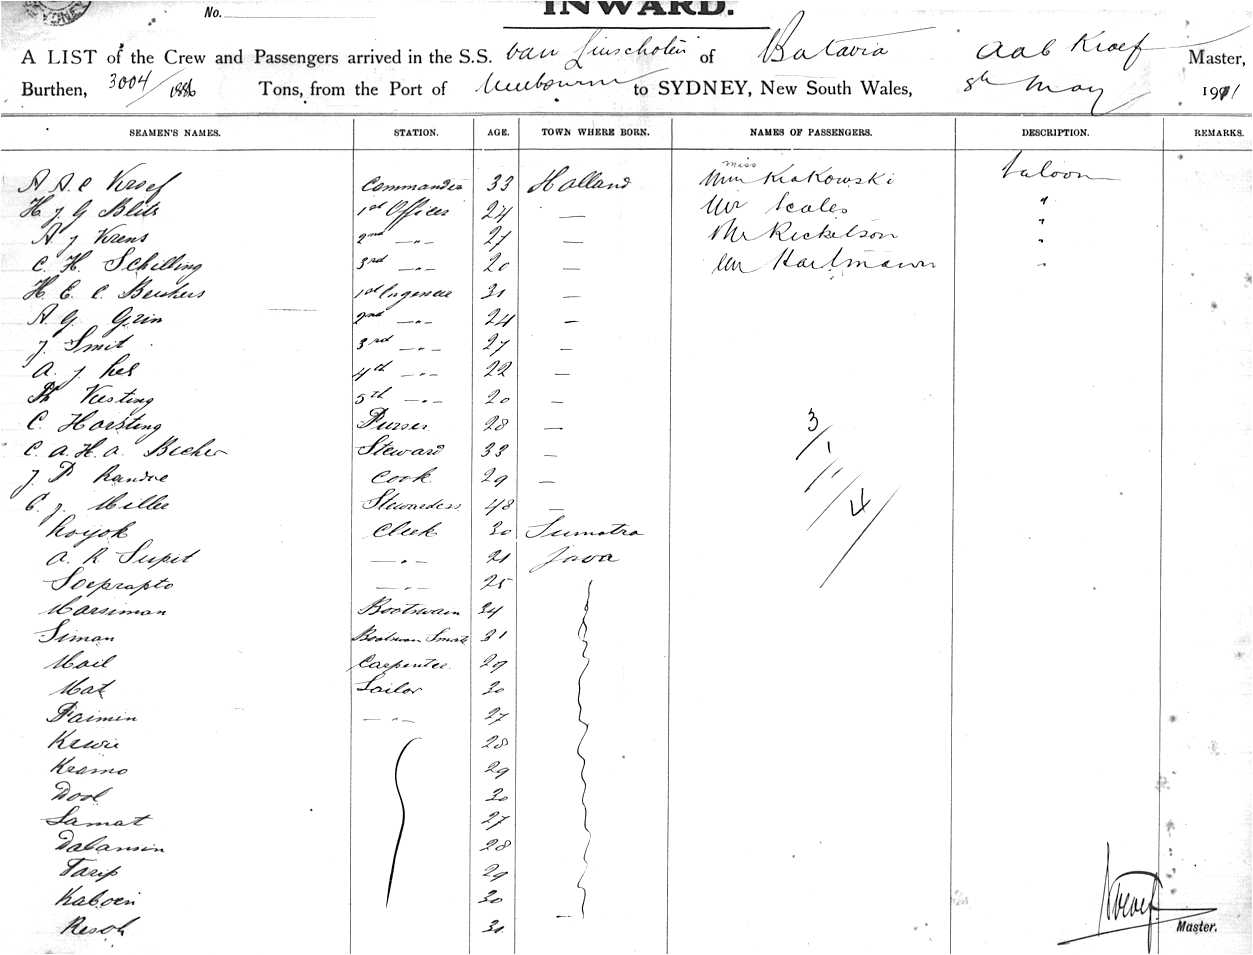 SYDNEY
No.
INWARD.
A LIST of the Crew and Passengers arrived in the S.S. van Linschoten of Batavia AAC Kroef Master,
Burthen, 3004/1886 Tons, from the Port of Melbourne to SYDNEY, New South Wales, 8th May 1911
SEAMEN'S NAMES. STATION. AGE. TOWN WHERE BORN. NAMES OF PASSENGERS. DESCRIPTION. REMARKS.
miss
A A C Kroef Commander 33 Holland Krakowski Saloon
H J G Blits 1st Officer 24 — Mr Scales "
A J Krens 2nd —"— 27 — Mr Ricketson "
C. H. Schilling 3rd —"— 20 — Mr Hartmann "
H. E. C. 1st 31 —
A G Grin 2nd —"— 24 —
J. Smit 3rd —"— 27 —
A. J 4th —"— 22 —
Th Kusting 5th —"— 20 —
C. Horsting Purser 28 —
C. A. H. A. Becher Steward 33 —
J. P Cook 29 —
C. J. Stewardess 48 —
Clerk 30 Sumatra
A. R Supit —"— 21 Java
Soeprapto —"— 25
Marsiman Bootswain 34
Siman Bootswan 31
Mail Carpenter 29
Mat Sailor 30
Paimin —"— 27
28
Kramo 29
Dool 30
Samat 27
28
Tarip 29
Kaboein 30
Resoh 30
3/1
1/
4/
Kroef
Master.